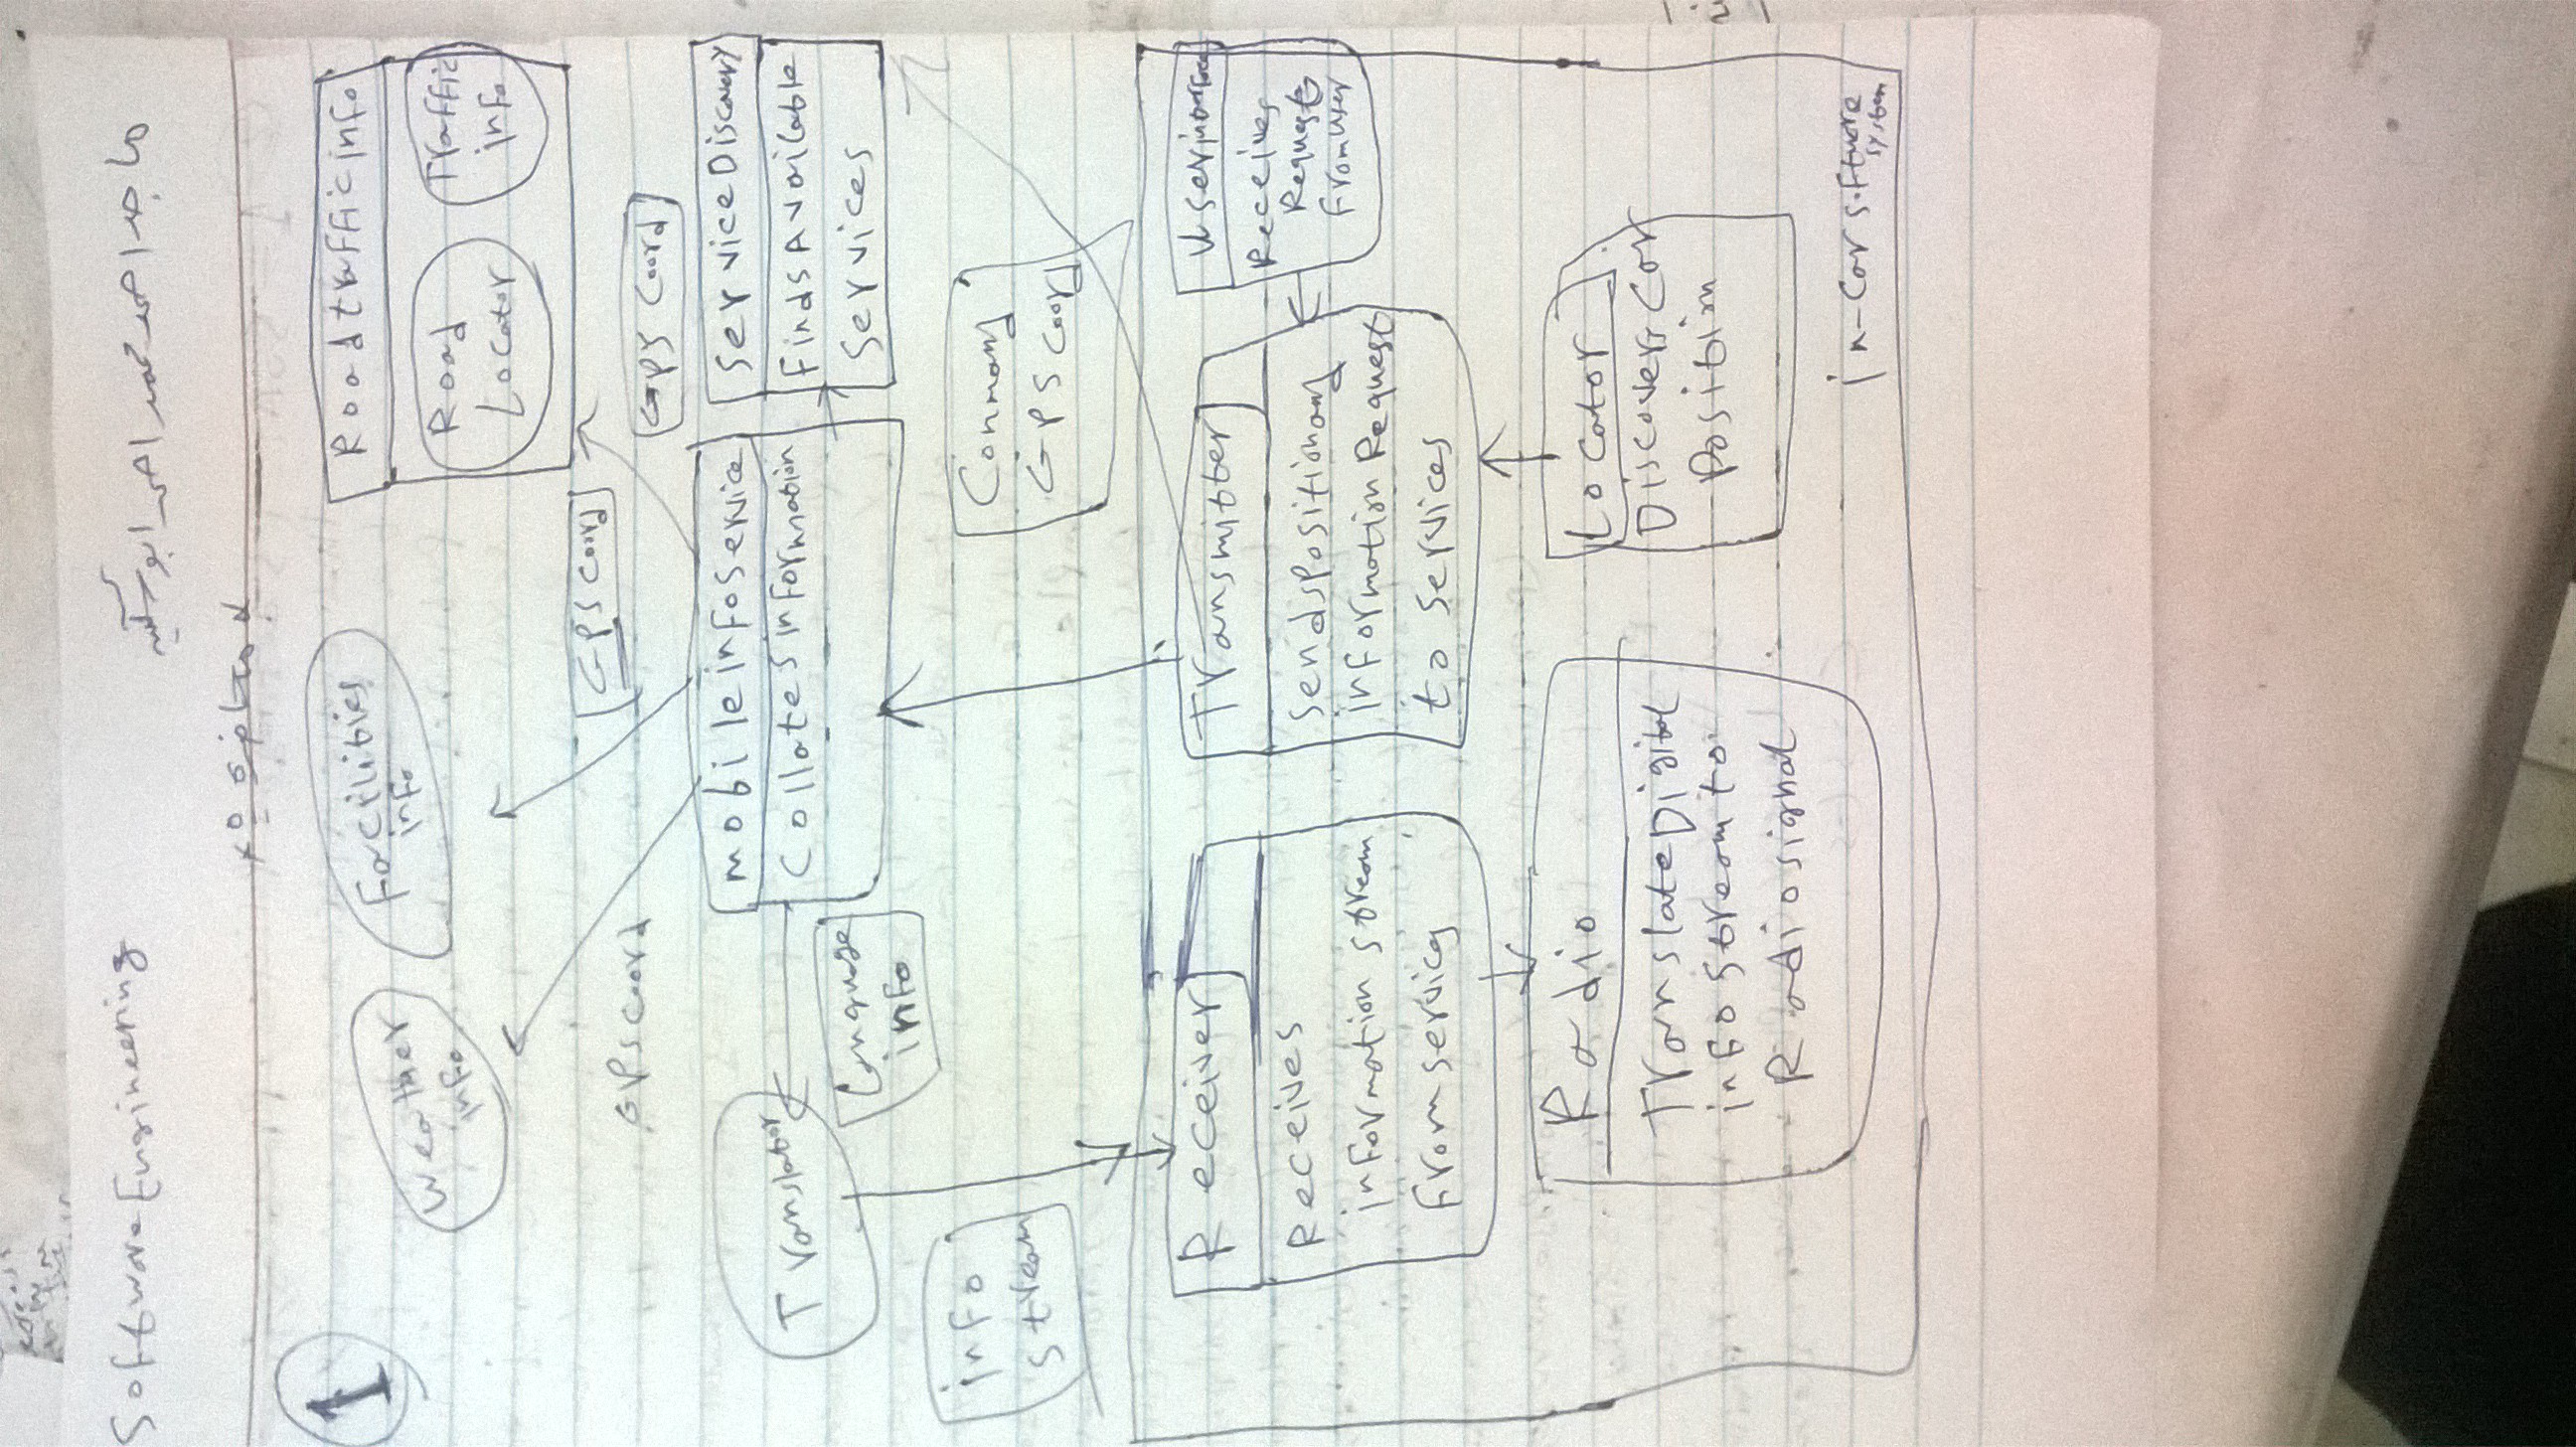 Software Engineering
ماجد احمد محمد احمد ابو سكينه
1
Weather
info
Facilities
info
Road traffic info
Road
Locator
Traffic
info
GPS Coord
GPS Coord
GPS Coord
Translator
mobile info Service
Collates information
Service Discovery
Finds Available
Services
Language
info
info
stream
Command
GPS Coord
Receiver
Receives
information stream
From services
Transmitter
Sends Position and
information Request
to services
User interface
Receives
Request
From user
Radio
Translate Digital
info stream to
Radio signal
Locator
Discovers Car
Position
in-Car software
system